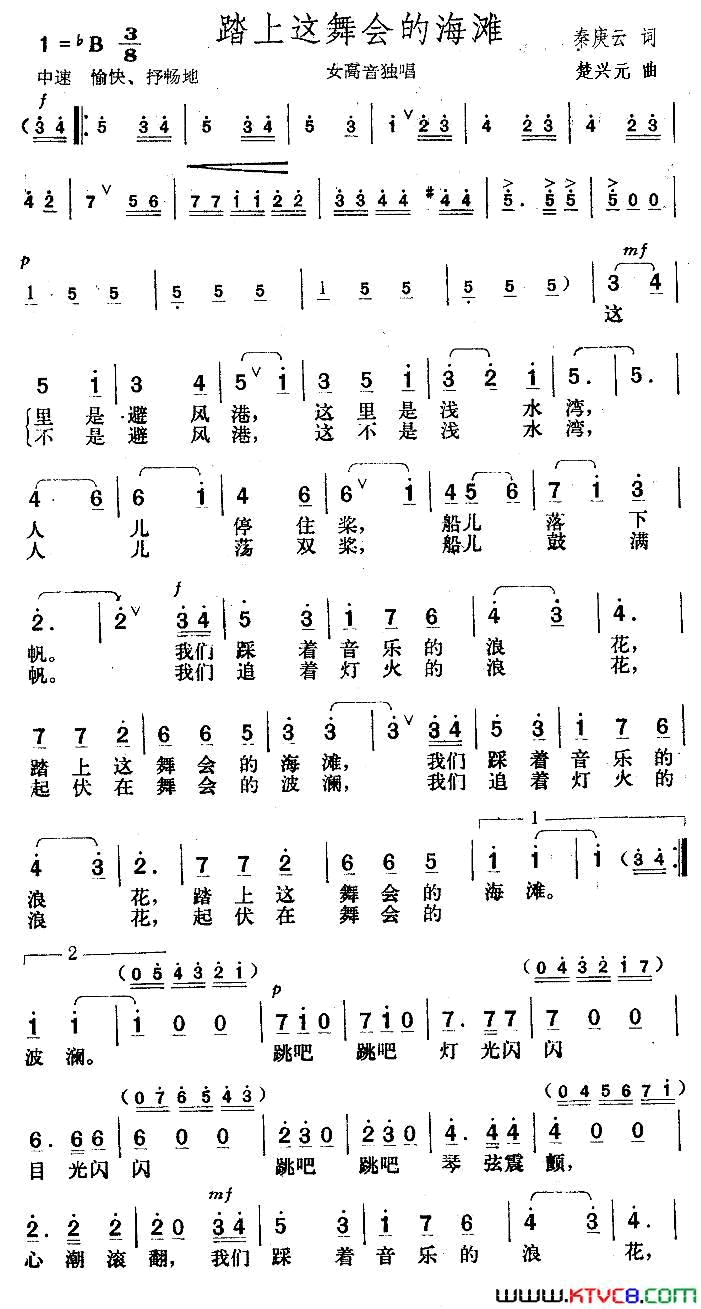 踏上这舞会的海滩
1=♭B 3/8
秦庚云 词
中速 愉快、抒畅地
女高音独唱
楚兴元 曲
f
(3 4 |: 5 3 4 | 5 3 4 | 5 3 | 1 ∨ 2 3 | 4 2 3 | 4 2 3 |
4 2 | 7 ∨ 5 6 | 7 7 1 1 2 2 | 3 3 4 4 #4 4 | 5 . 5 5 | 5 0 0 |
p mf
1 5 5 | 5 5 5 | 1 5 5 | 5 5 5 ) | 3 4 |
这
5 1 | 3 4 | 5 ∨ 1 | 3 5 1 | 3 2 1 | 5 . | 5 . |
里是避风港, 这里是浅水湾,
不是避风港, 这不是浅水湾,
4 6 | 6 1 | 4 6 | 6 ∨ 1 | 4 5 6 | 7 1 3 |
人儿停住桨, 船儿落下
人儿荡双桨, 船儿鼓满
f
2 . | 2 ∨ 3 4 | 5 3 | 1 7 6 | 4 3 | 4 . |
帆。 我们踩着音乐的浪花,
帆。 我们追着灯火的浪花,
7 7 2 | 6 6 5 | 3 3 | 3 ∨ 3 4 | 5 3 | 1 7 6 |
踏上这舞会的海滩, 我们踩着音乐的
起伏在舞会的波澜, 我们追着灯火的
1
4 3 | 2 . | 7 7 2 | 6 6 5 | 1 1 | 1 (3 4 :|
浪花, 踏上这舞会的海滩。
浪花, 起伏在舞会的
2 (0 5 4 3 2 1) (0 4 3 2 1 7)
p
1 1 | 1 0 0 | 7 1 0 | 7 1 0 | 7 . 7 7 | 7 0 0 |
波澜。 跳吧 跳吧 灯光闪闪
(0 7 6 5 4 3) (0 4 5 6 7 1)
6 . 6 6 | 6 0 0 | 2 3 0 | 2 3 0 | 4 . 4 4 | 4 0 0 |
目光闪闪 跳吧 跳吧 琴弦震颤,
mf
2 . 2 2 | 2 0 3 4 | 5 3 | 1 7 6 | 4 3 | 4 . |
心潮滚翻, 我们踩着音乐的浪花,
www.KTVC8.com